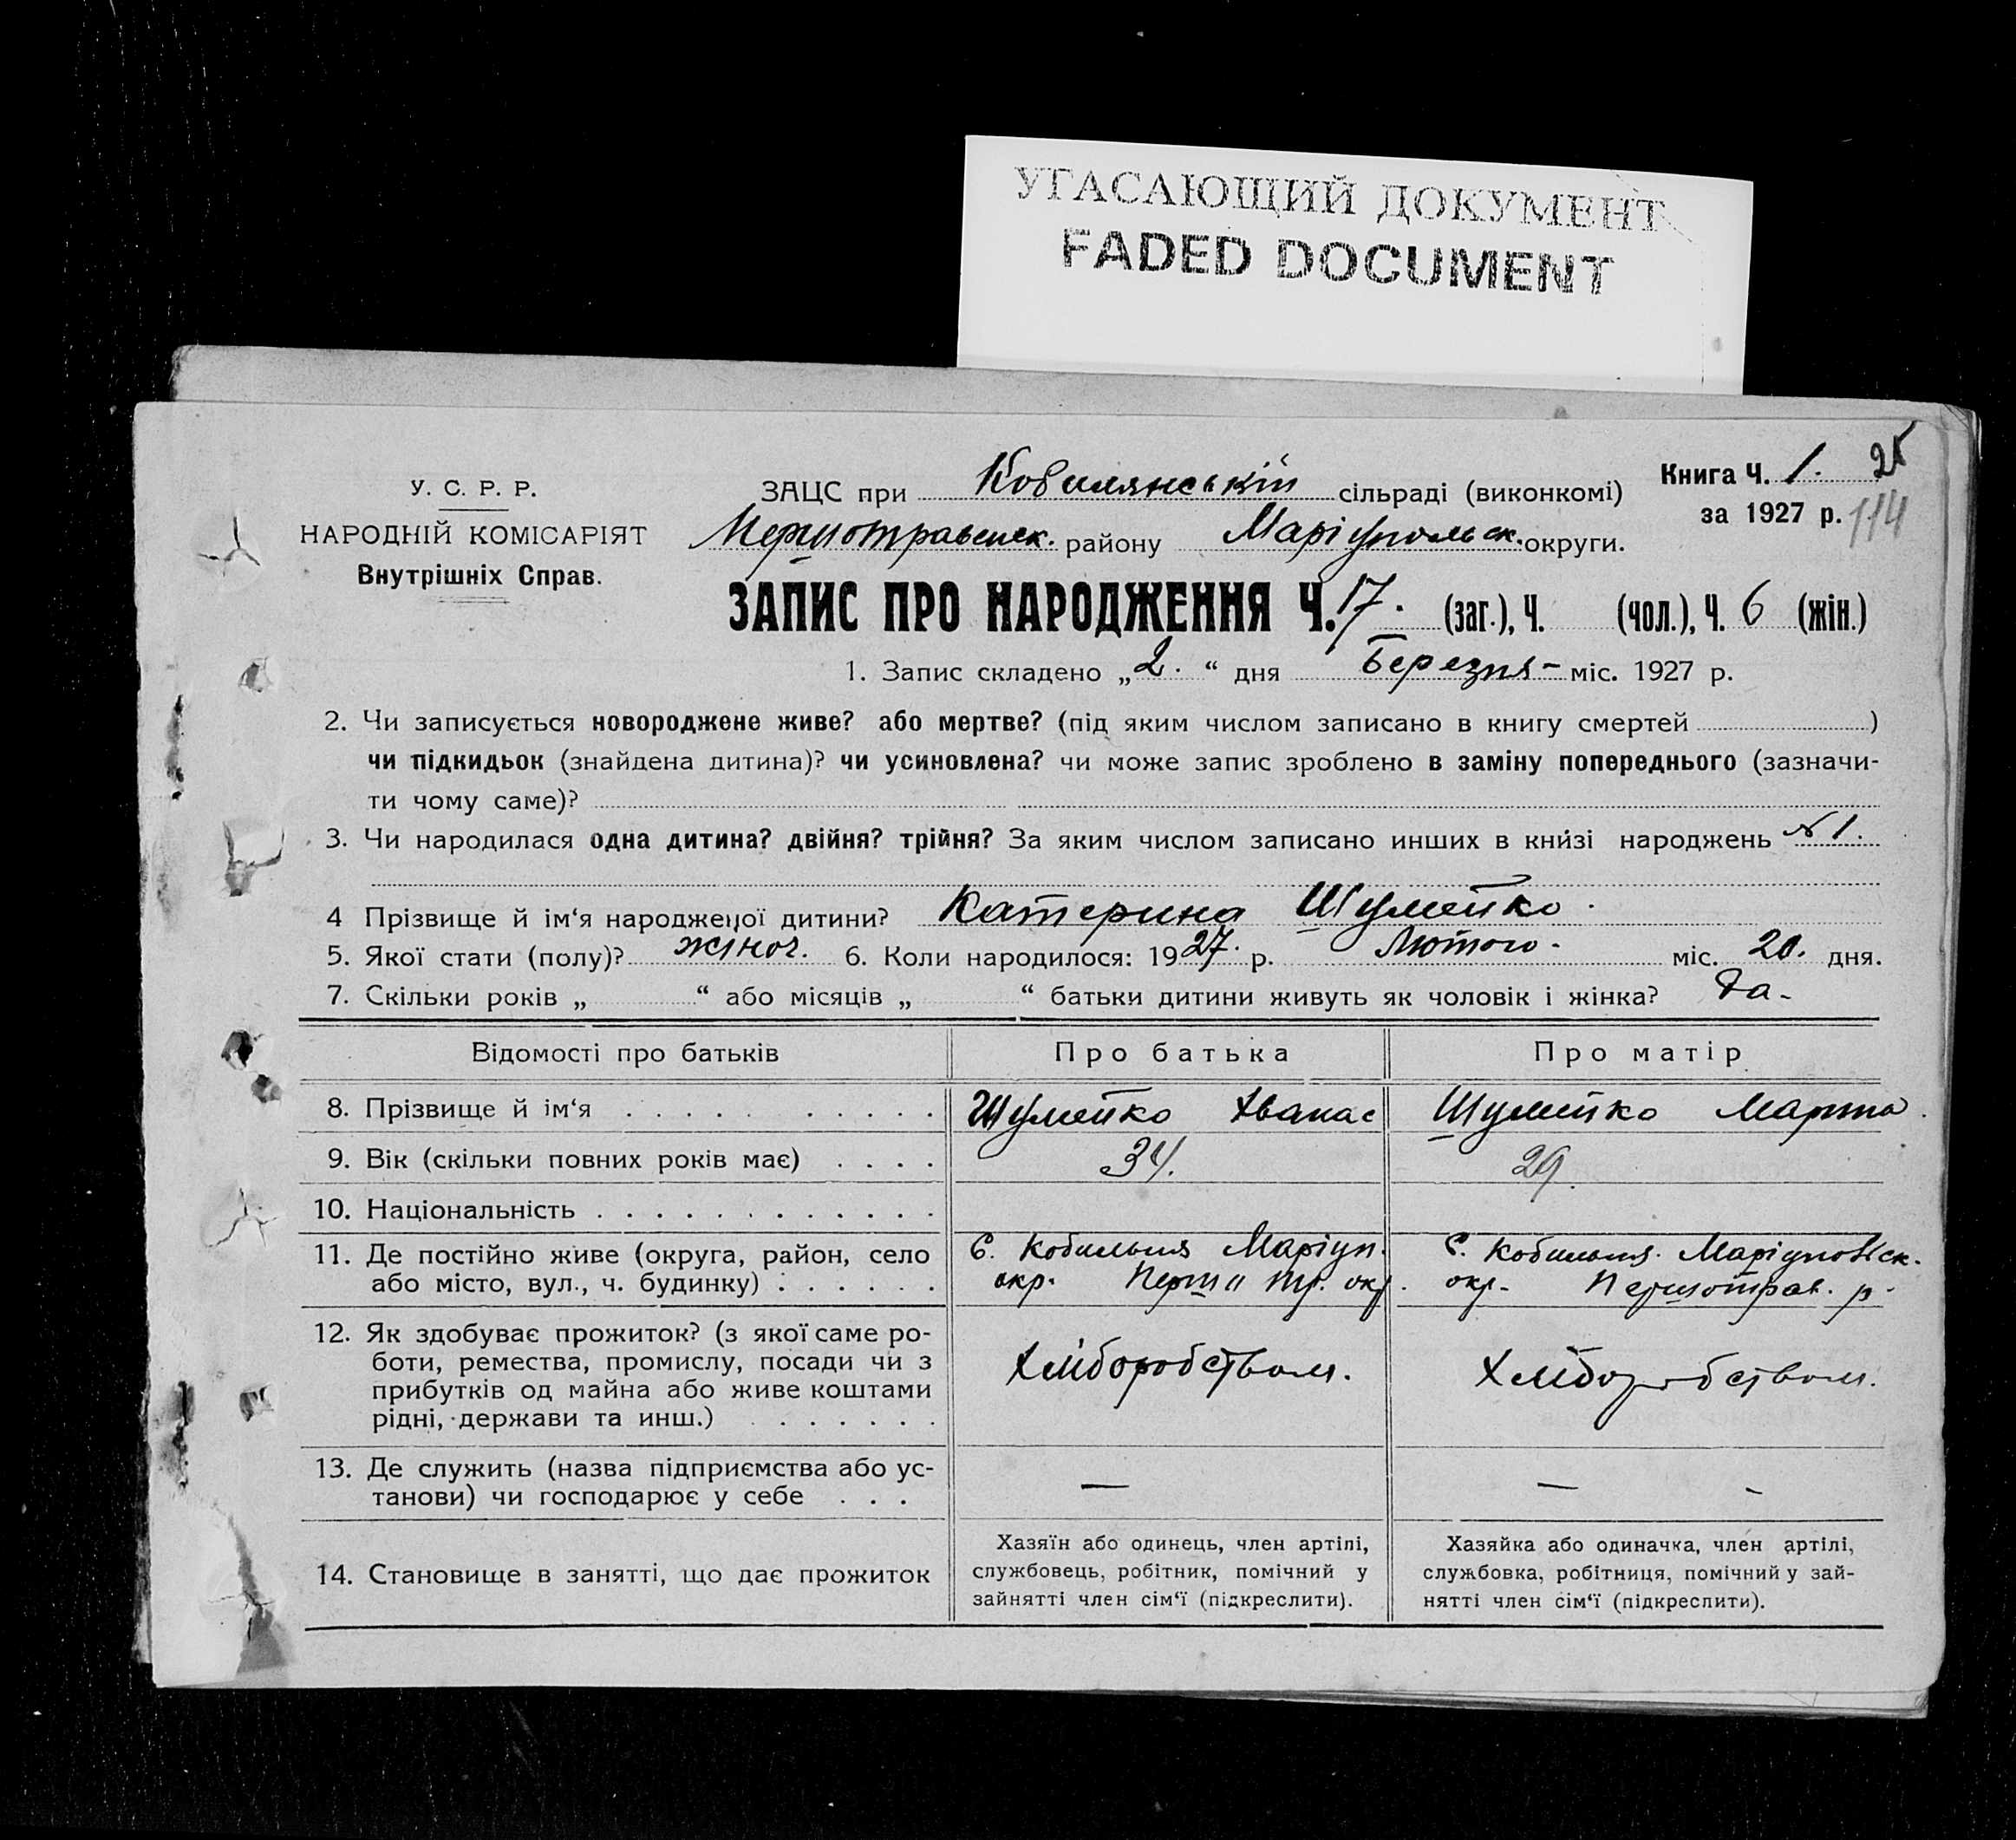 УГАСАЮЩИЙ ДОКУМЕНТ
FADED DOCUMENT
У. С. Р. Р.
НАРОДНІЙ КОМІСАРІЯТ
Внутрішніх Справ.
ЗАЦС при Кобилянській сільраді (виконкомі)
Першотравенск. району Маріупольск. округи.
Книга Ч. 1. 25
за 1927 р. 114
ЗАПИС ПРО НАРОДЖЕННЯ Ч. 17. (заг.), Ч. (чол.), Ч. 6 (жін.)
1. Запис складено „2.“ дня Березня – міс. 1927 р.
2. Чи записується новороджене живе? або мертве? (під яким числом записано в книгу смертей )
чи підкидьок (знайдена дитина)? чи усиновлена? чи може запис зроблено в заміну попереднього (зазначи-
ти чому саме)?
3. Чи народилася одна дитина? двійня? трійня? За яким числом записано инших в книзі народжень № 1.
4 Прізвище й ім‘я народженої дитини? Катерина Шумейко.
5. Якої стати (полу)? жіноч. 6. Коли народилося: 1927. р. Лютого. міс. 20. дня.
7. Скільки років „ “ або місяців „ “ батьки дитини живуть як чоловік і жінка? Да.
Відомості про батьків Про батька Про матір
8. Прізвище й ім‘я Шумейко Хванас Шумейко Марта
9. Вік (скільки повних років має) 34. 29.
10. Національність
11. Де постійно живе (округа, район, село
або місто, вул., ч. будинку)
С. Кобильня Маріуп.
окр. Перш тр. окр.
С. Кобильня. Маріупольск.
окр. Першотрав. р.
12. Як здобуває прожиток? (з якої саме ро-
боти, ремества, промислу, посади чи з
прибутків од майна або живе коштами
рідні, держави та инш.)
Хліборобством.
Хліборобством.
13. Де служить (назва підприємства або ус-
танови) чи господарює у себе
—
— -
14. Становище в занятті, що дає прожиток
Хазяїн або одинець, член артілі,
службовець, робітник, помічний у
зайнятті член сім‘ї (підкреслити).
Хазяйка або одиначка, член артілі,
службовка, робітниця, помічний у зай-
нятті член сім‘ї (підкреслити).